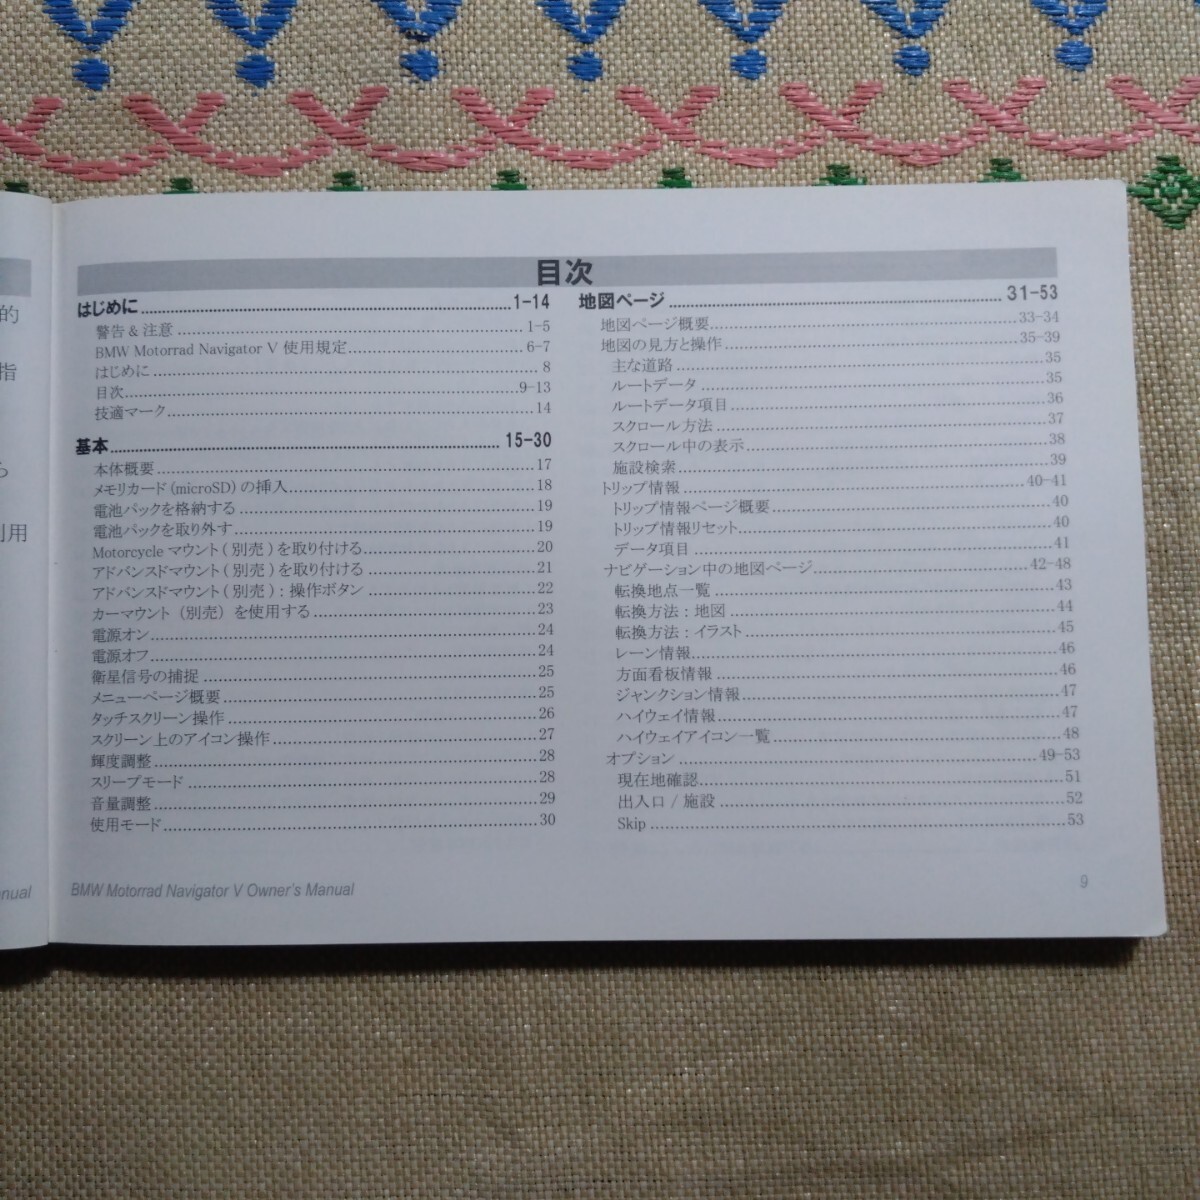 的
指
ら
利用
nual
目次
はじめに 1-14
警告 & 注意 1-5
BMW Motorrad Navigator V 使用規定 6-7
はじめに 8
目次 9-13
技適マーク 14
基本 15-30
本体概要 17
メモリカード (microSD) の挿入 18
電池パックを格納する 19
電池パックを取り外す 19
Motorcycle マウント ( 別売 ) を取り付ける 20
アドバンスドマウント ( 別売 ) を取り付ける 21
アドバンスドマウント ( 別売 ) : 操作ボタン 22
カーマウント (別売) を使用する 23
電源オン 24
電源オフ 24
衛星信号の捕捉 25
メニューページ概要 25
タッチスクリーン操作 26
スクリーン上のアイコン操作 27
輝度調整 28
スリープモード 28
音量調整 29
使用モード 30
地図ページ 31-53
地図ページ概要 33-34
地図の見方と操作 35-39
主な道路 35
ルートデータ 35
ルートデータ項目 36
スクロール方法 37
スクロール中の表示 38
施設検索 39
トリップ情報 40-41
トリップ情報ページ概要 40
トリップ情報リセット 40
データ項目 41
ナビゲーション中の地図ページ 42-48
転換地点一覧 43
転換方法 : 地図 44
転換方法 : イラスト 45
レーン情報 46
方面看板情報 46
ジャンクション情報 47
ハイウェイ情報 47
ハイウェイアイコン一覧 48
オプション 49-53
現在地確認 51
出入口 / 施設 52
Skip 53
BMW Motorrad Navigator V Owner's Manual
9